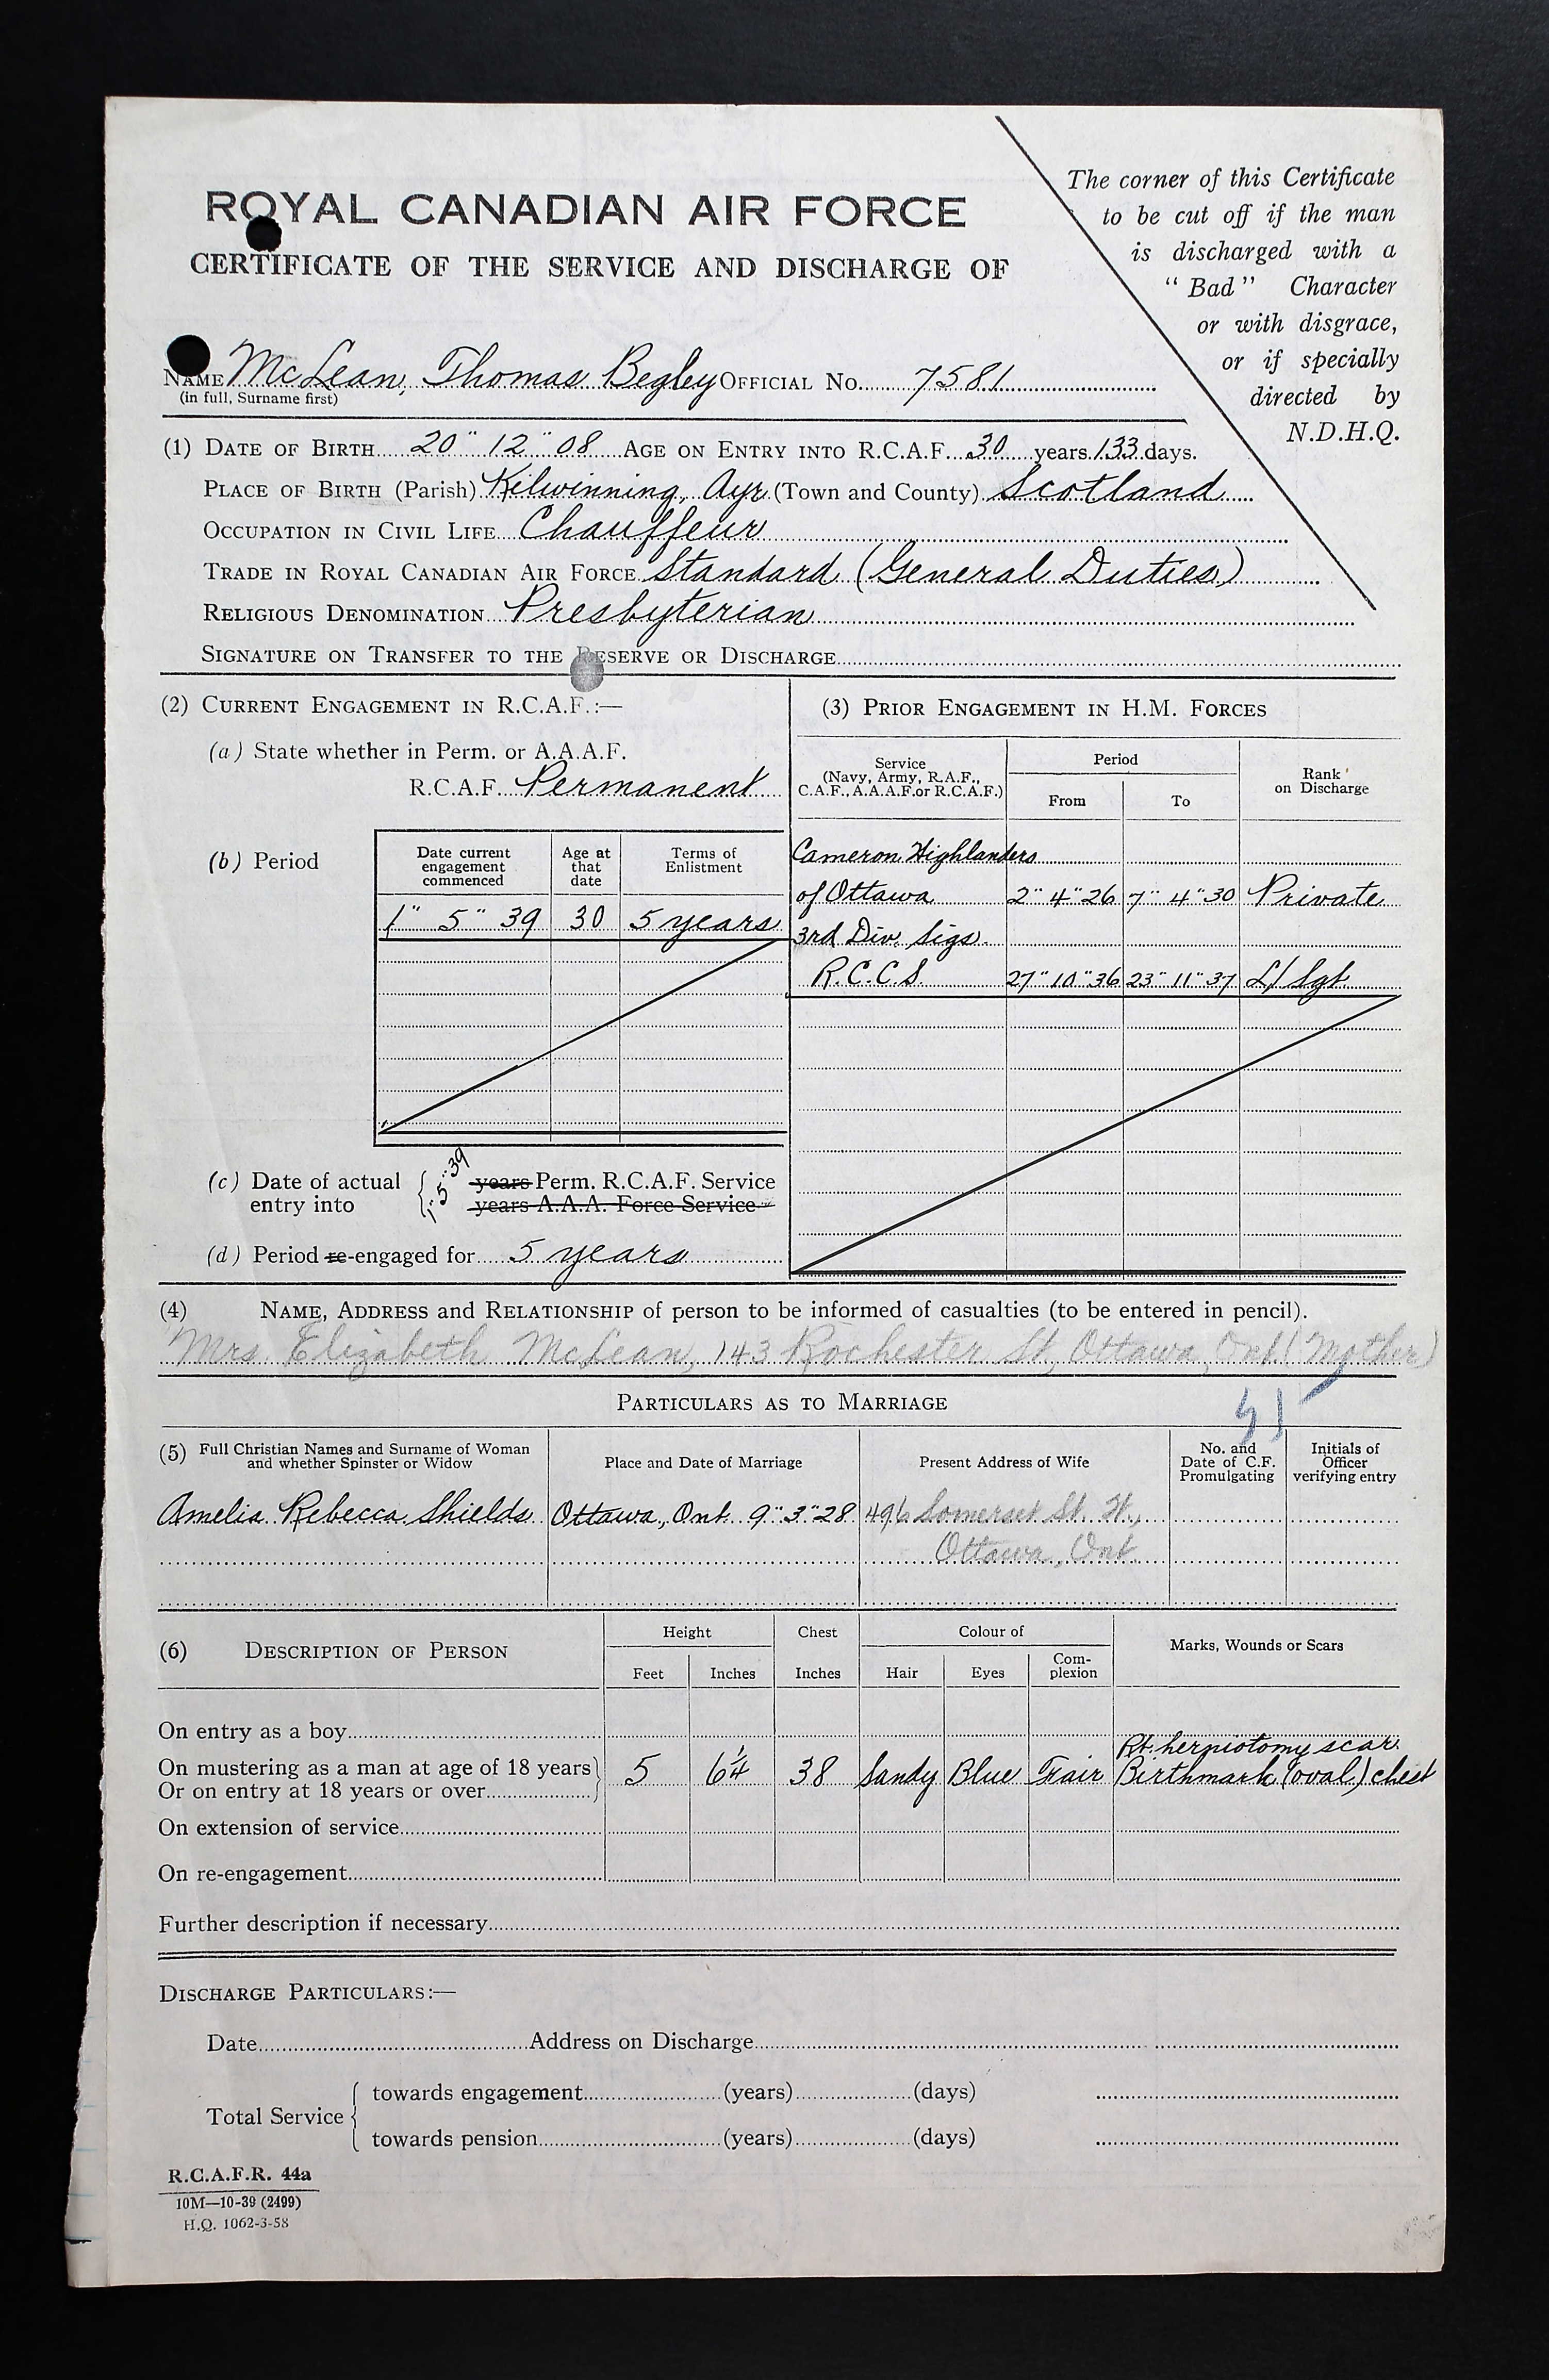 The corner of this Certificate
to be cut off if the man
is discharged with a
"Bad" Character
or with disgrace,
or if specially
directed by
N.D.H.Q.
ROYAL CANADIAN AIR FORCE
CERTIFICATE OF THE SERVICE AND DISCHARGE OF
NAME McLean, Thomas Begley OFFICIAL NO. 7581
(in full, Surname first)
(1) DATE OF BIRTH 20" 12" 08 AGE ON ENTRY INTO R.C.A.F. 30 years 133 days.
PLACE OF BIRTH (Parish) Kilwinning, Ayr (Town and County) Scotland
OCCUPATION IN CIVIL LIFE Chauffeur
TRADE IN ROYAL CANADIAN AIR FORCE Standard (General Duties)
RELIGIOUS DENOMINATION Presbyterian
SIGNATURE ON TRANSFER TO THE RESERVE OR DISCHARGE
(2) CURRENT ENGAGEMENT IN R.C.A.F.:—
(a) State whether in Perm. or A.A.A.F.
R.C.A.F. Permanent
(b) Period
Date current engagement commenced Age at that date Terms of Enlistment
1" 5" 39 30 5 years
(c) Date of actual entry into 1" 5" 39 years Perm. R.C.A.F. Service
years A.A.A. Force Service
(d) Period re-engaged for 5 years
(3) PRIOR ENGAGEMENT IN H.M. FORCES
Service (Navy, Army, R.A.F., C.A.F., A.A.A.F. or R.C.A.F.) Period Rank on Discharge
From To
Cameron Highlanders
of Ottawa 2" 4" 26 7" 4" 30 Private
3rd Div. Sigs.
R.C.C.S. 27" 10" 36 23" 11" 37 L/Sgt.
(4) NAME, ADDRESS and RELATIONSHIP of person to be informed of casualties (to be entered in pencil).
Mrs. Elizabeth McLean, 143 Rochester St., Ottawa, Ont. (Mother)
PARTICULARS AS TO MARRIAGE
(5) Full Christian Names and Surname of Woman and whether Spinster or Widow Place and Date of Marriage Present Address of Wife No. and Date of C.F. Promulgating Initials of Officer verifying entry
Amelia Rebecca Shields Ottawa, Ont. 9" 3" 28 496 Somerset St. W.,
Ottawa, Ont.
(6) DESCRIPTION OF PERSON Height Chest Colour of Marks, Wounds or Scars
Feet Inches Inches Hair Eyes Complexion
On entry as a boy
Rt. herniotomy scar.
On mustering as a man at age of 18 years
Or on entry at 18 years or over 5 6¼ 38 Sandy Blue Fair Birthmark (oval) chest
On extension of service
On re-engagement
Further description if necessary
DISCHARGE PARTICULARS:—
Date Address on Discharge
Total Service towards engagement (years) (days)
towards pension (years) (days)
R.C.A.F.R. 44a
10M—10-39 (2499)
H.Q. 1062-3-58